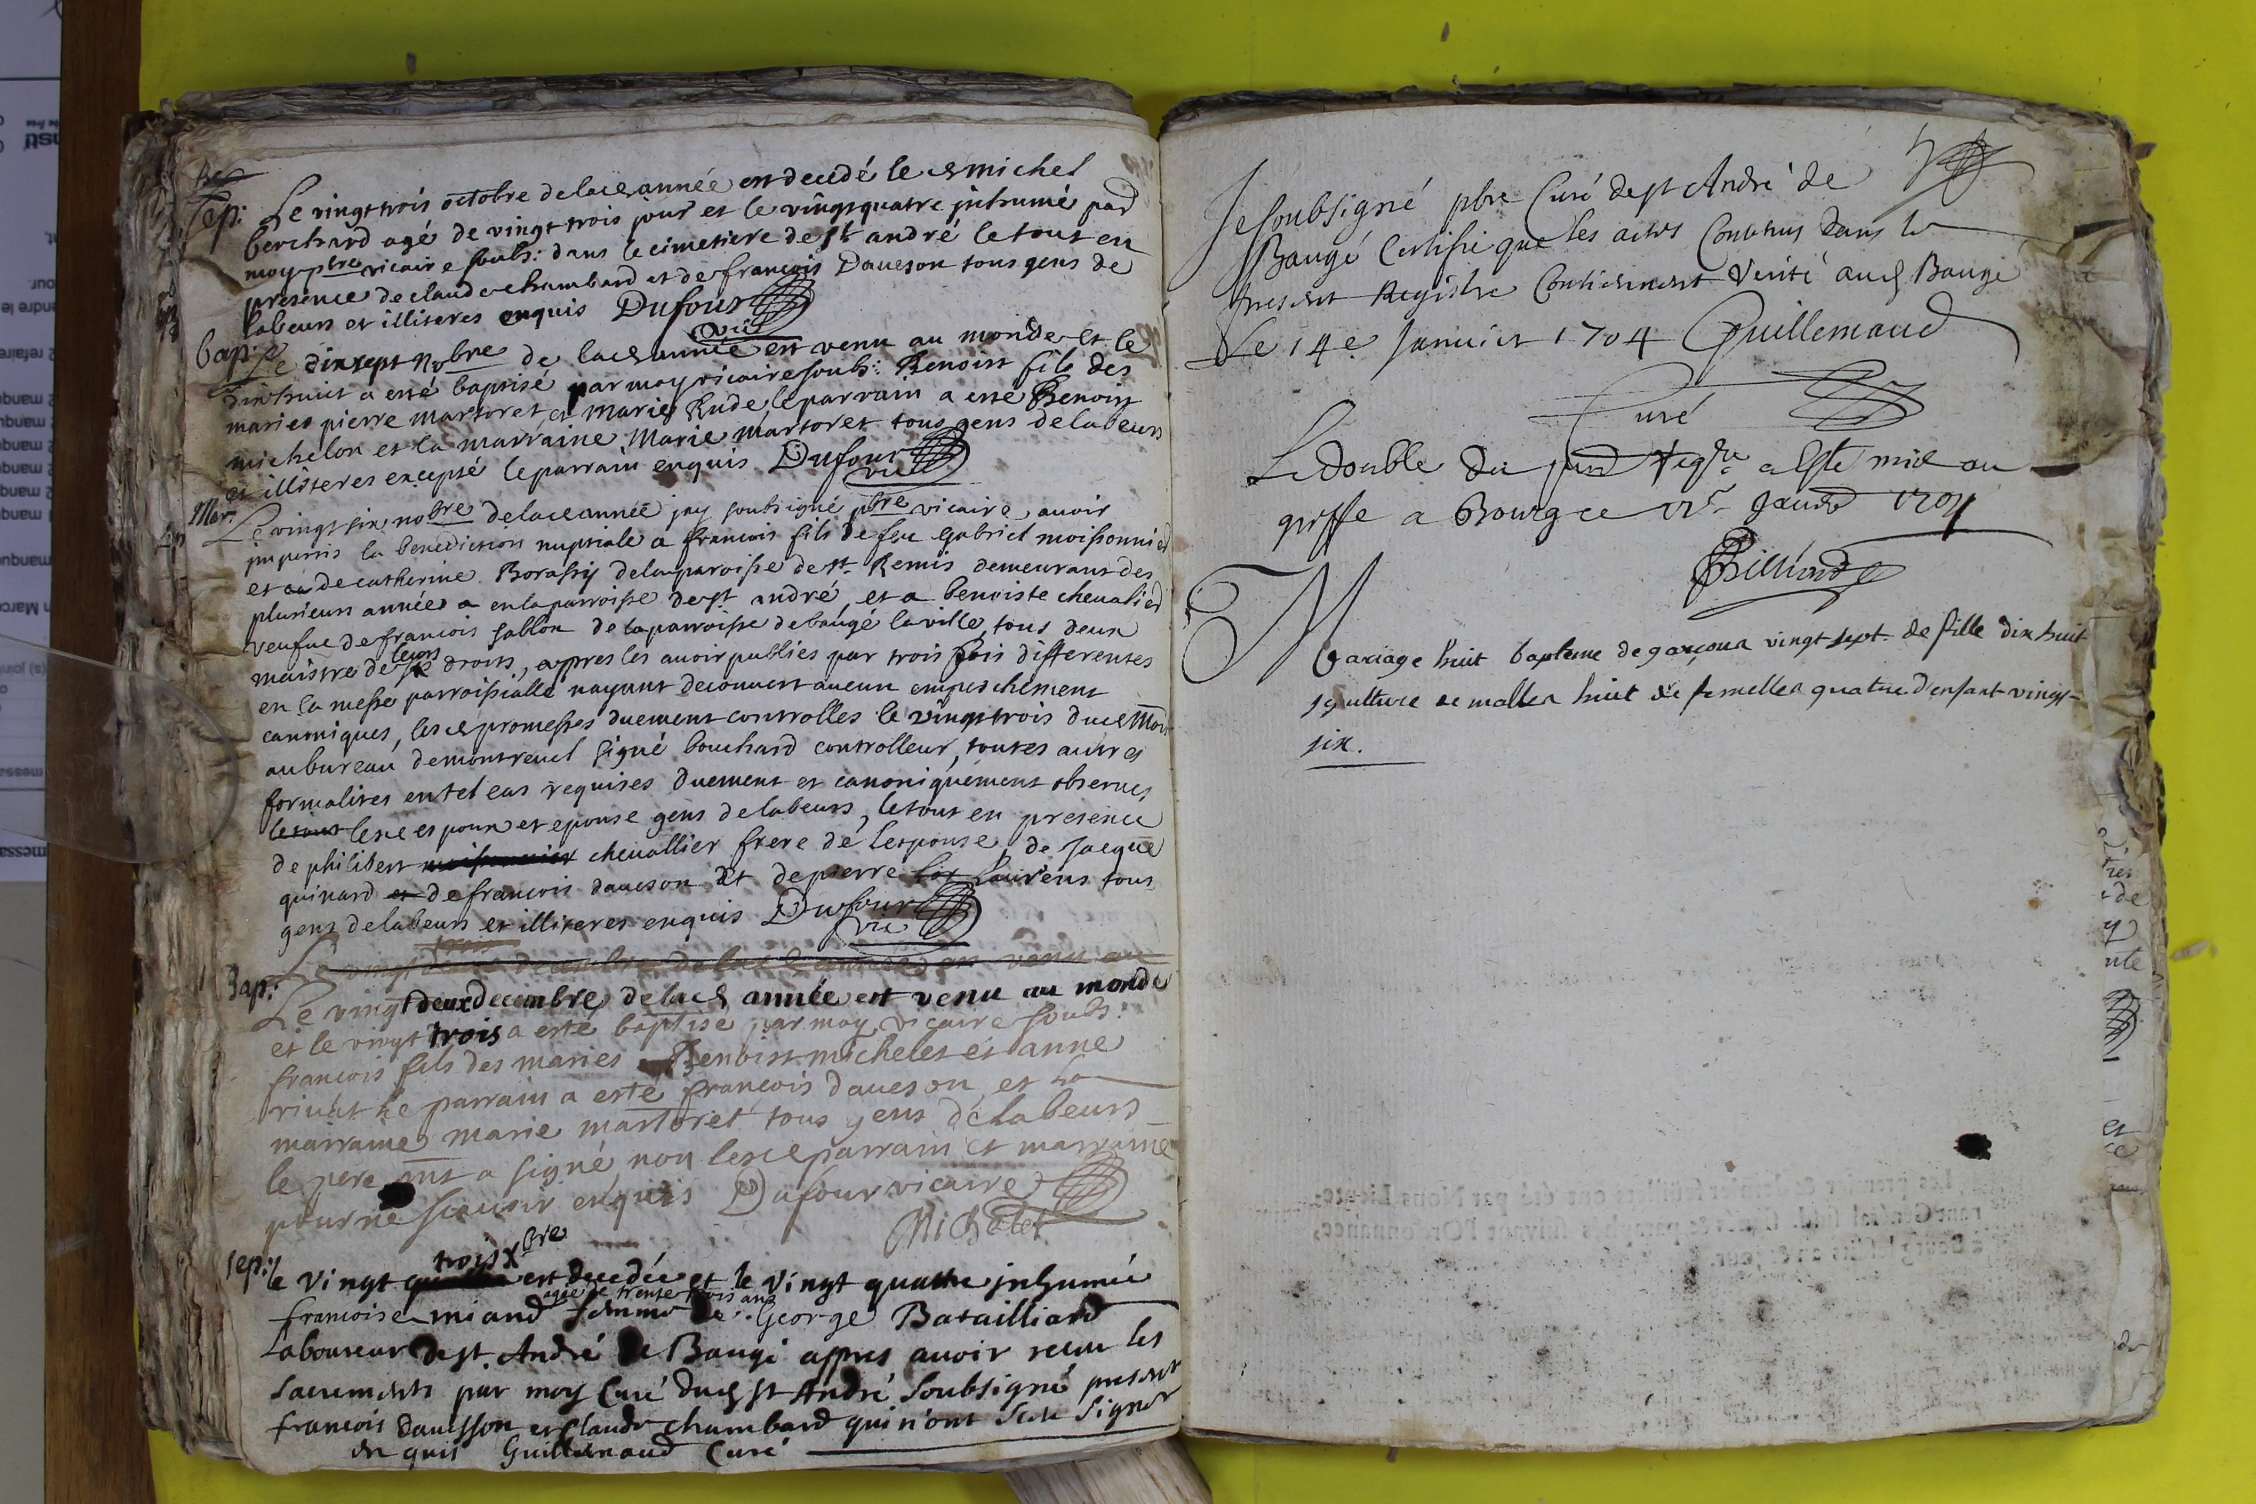 Sep:
Le vingt trois octobre delade année est decedé le d michel
berchard agé de vingt trois jour et le vingt quatre inhumé par
moy pbre vicaire soubs: dans le cimetiere de st andré le tout en
presence de claude chambard et de françois Daueson tous gens de
labeurs et illiteres enquis Dufour
vic
bap:
Le dixsept nobre de lad année est venu au monde et le
dixhuit a esté baptisé par moy vicaire soubs: Benoist fils des
maries pierre martoret et marie Rude le parrain a esté Benoist
michelon et la marraine Marie martoret tous gens de labeurs
et illiteres excepté le parrain enquis Dufour
vic
Mar:
Le vingt six nobre delade année jay soubsigné pbre vicaire avoir
imparris la benediction nuptiale a francois fils de feu Gabriel moissonnier
et de catherine Borassy dela paroisse de st Remis demeurant des
plusieurs années en la parroisse de st andré, et a benoiste chevalier
veufue de francois sablon de la parroisse de baugé la ville, tous deux
maistre de leurs droits, apres les avoir publies par trois fois differentes
en la messe parroissialle nayant decouvert aucun empeschement
canoniques, lesd promesses duement controlles le vingt trois dud mois
au bureau de montreuel signé bouchard controlleur, toutes autres
formalites en tel cas requises duement et canoniquement obserues,
le tout lesd espoux et epouse gens de labeurs, le tout en presence
de philibert chevallier frere de lespouse, de Jacque
quinard et de francois daueson et de pierre Laurens tous
gens de labeurs et illiteres enquis Dufour
vic
trois
Le vingt decembre delad année est venu au
Bap:
Le vingt deux decembre, delad année est venu au monde
et le vingt trois a esté baptisé par moy vicaire soubs:
francois fils des maries Benoist michelet et anne
rivat le parrain a esté francois daueson et la
marraine marie martoret tous gens de labeurs
le pere a signé non lesd parrain et marraine
pour ne scavoir enquis Dufour vicaire
Michelet
sep:
trois xbre
le vingt est decedée et le vingt quatre inhumée
agée de trente trois ans
francoise miand femme de George Batailliard
Laboureur de st. André de Baugé appres auoir receu les
sacrements par moy Curé dud st André soubsigné present
francois Dauesson et Claude chambard qui n'ont sceu signer
enquis Guillemaud Curé
Je soubsigné pbre Curé de st André de
Baugé Certifie que les actes Contenus dans le
present Registre Contiennent Verité aud Baugé
Le 14e Janvier 1704 Guillemaud
Curé
Le double du pnt regre a esté mis au
greffe a Bourg ce janvr 1704
Billiard
Mariage huit bapteme de garçons vingt sept de fille dix huit
sepulture de malles huit de femelles quatre d'enfant vingt
six.
Les premier & dernier feüillets ont été par Nous Lieute-
nant General suivant l'Ordonnance,